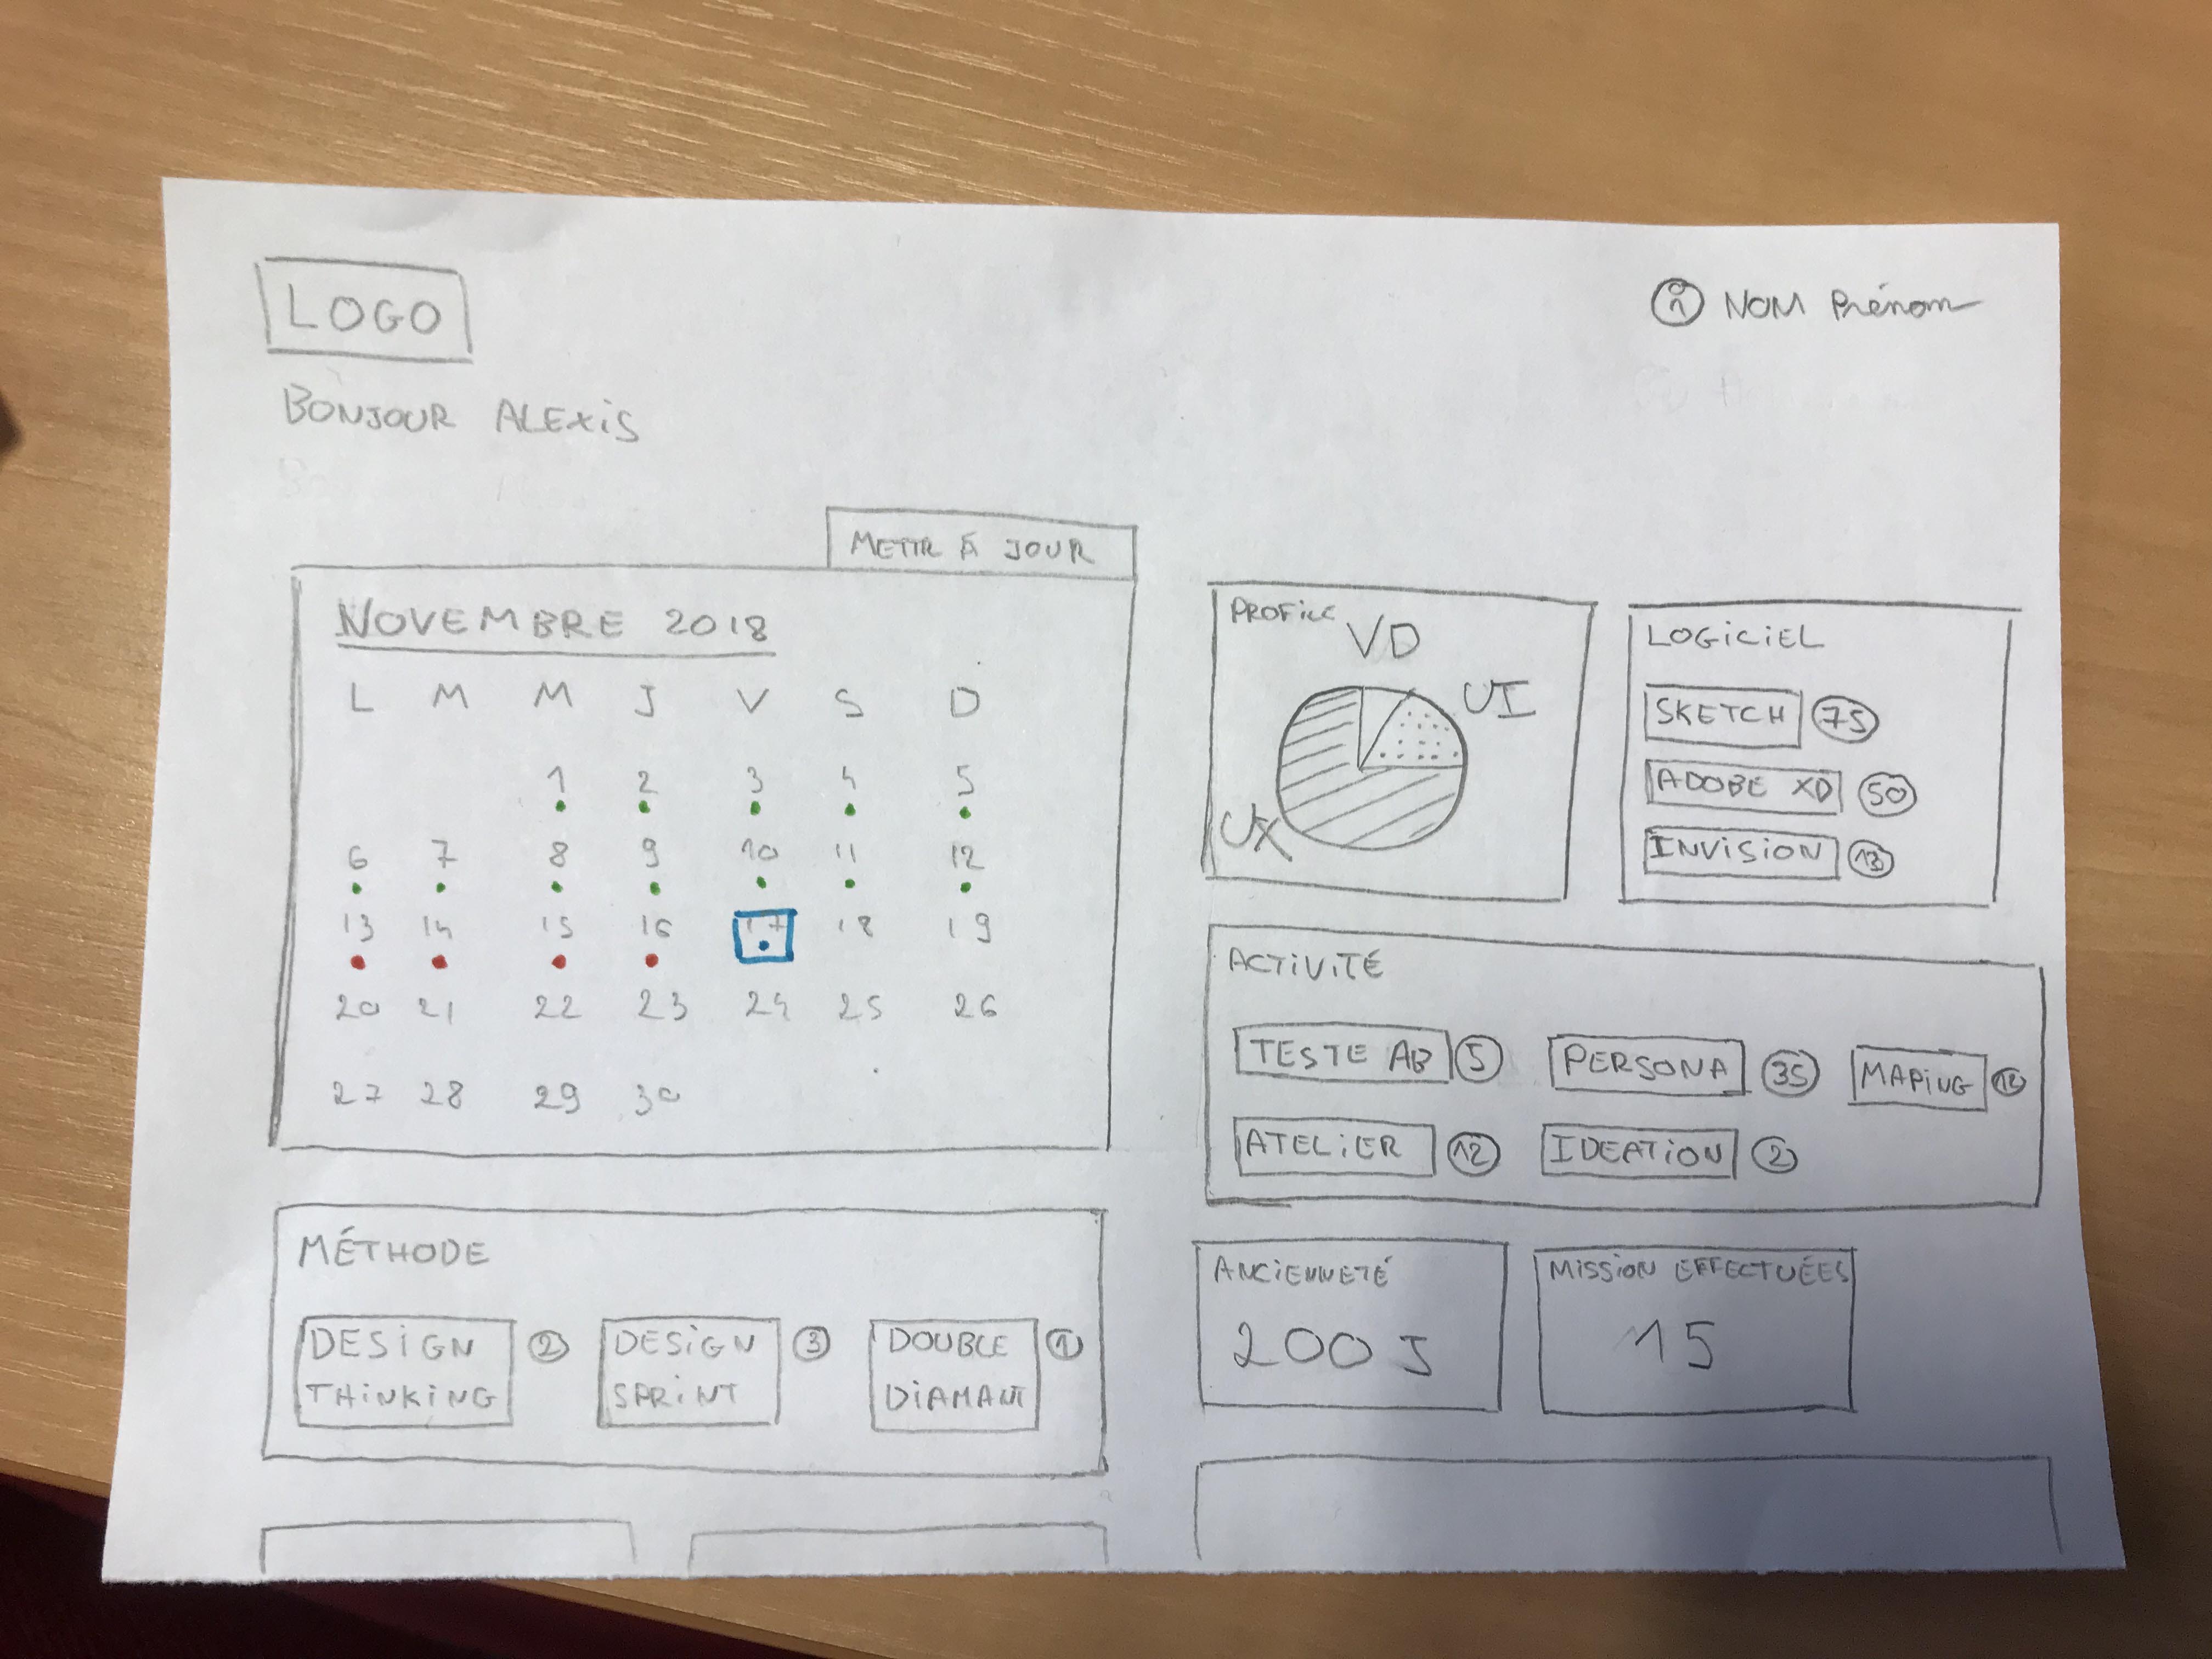 LOGO
NOM Prénom
BONJOUR ALEXIS
METTR À JOUR
NOVEMBRE 2018
L M M J V S D
1 2 3 4 5
6 7 8 9 10 11 12
13 14 15 16 17 18 19
20 21 22 23 24 25 26
27 28 29 30
MÉTHODE
DESIGN THINKING 2
DESIGN SPRINT 3
DOUBLE DIAMANT 1
PROFILE
VD
UI
UX
LOGICIEL
SKETCH 75
ADOBE XD 50
INVISION 13
ACTIVITÉ
TESTE AB 5 PERSONA 35 MAPING
ATELIER 12 IDEATION 2
ANCIENNETÉ
200 J
MISSION EFFECTUÉES
15